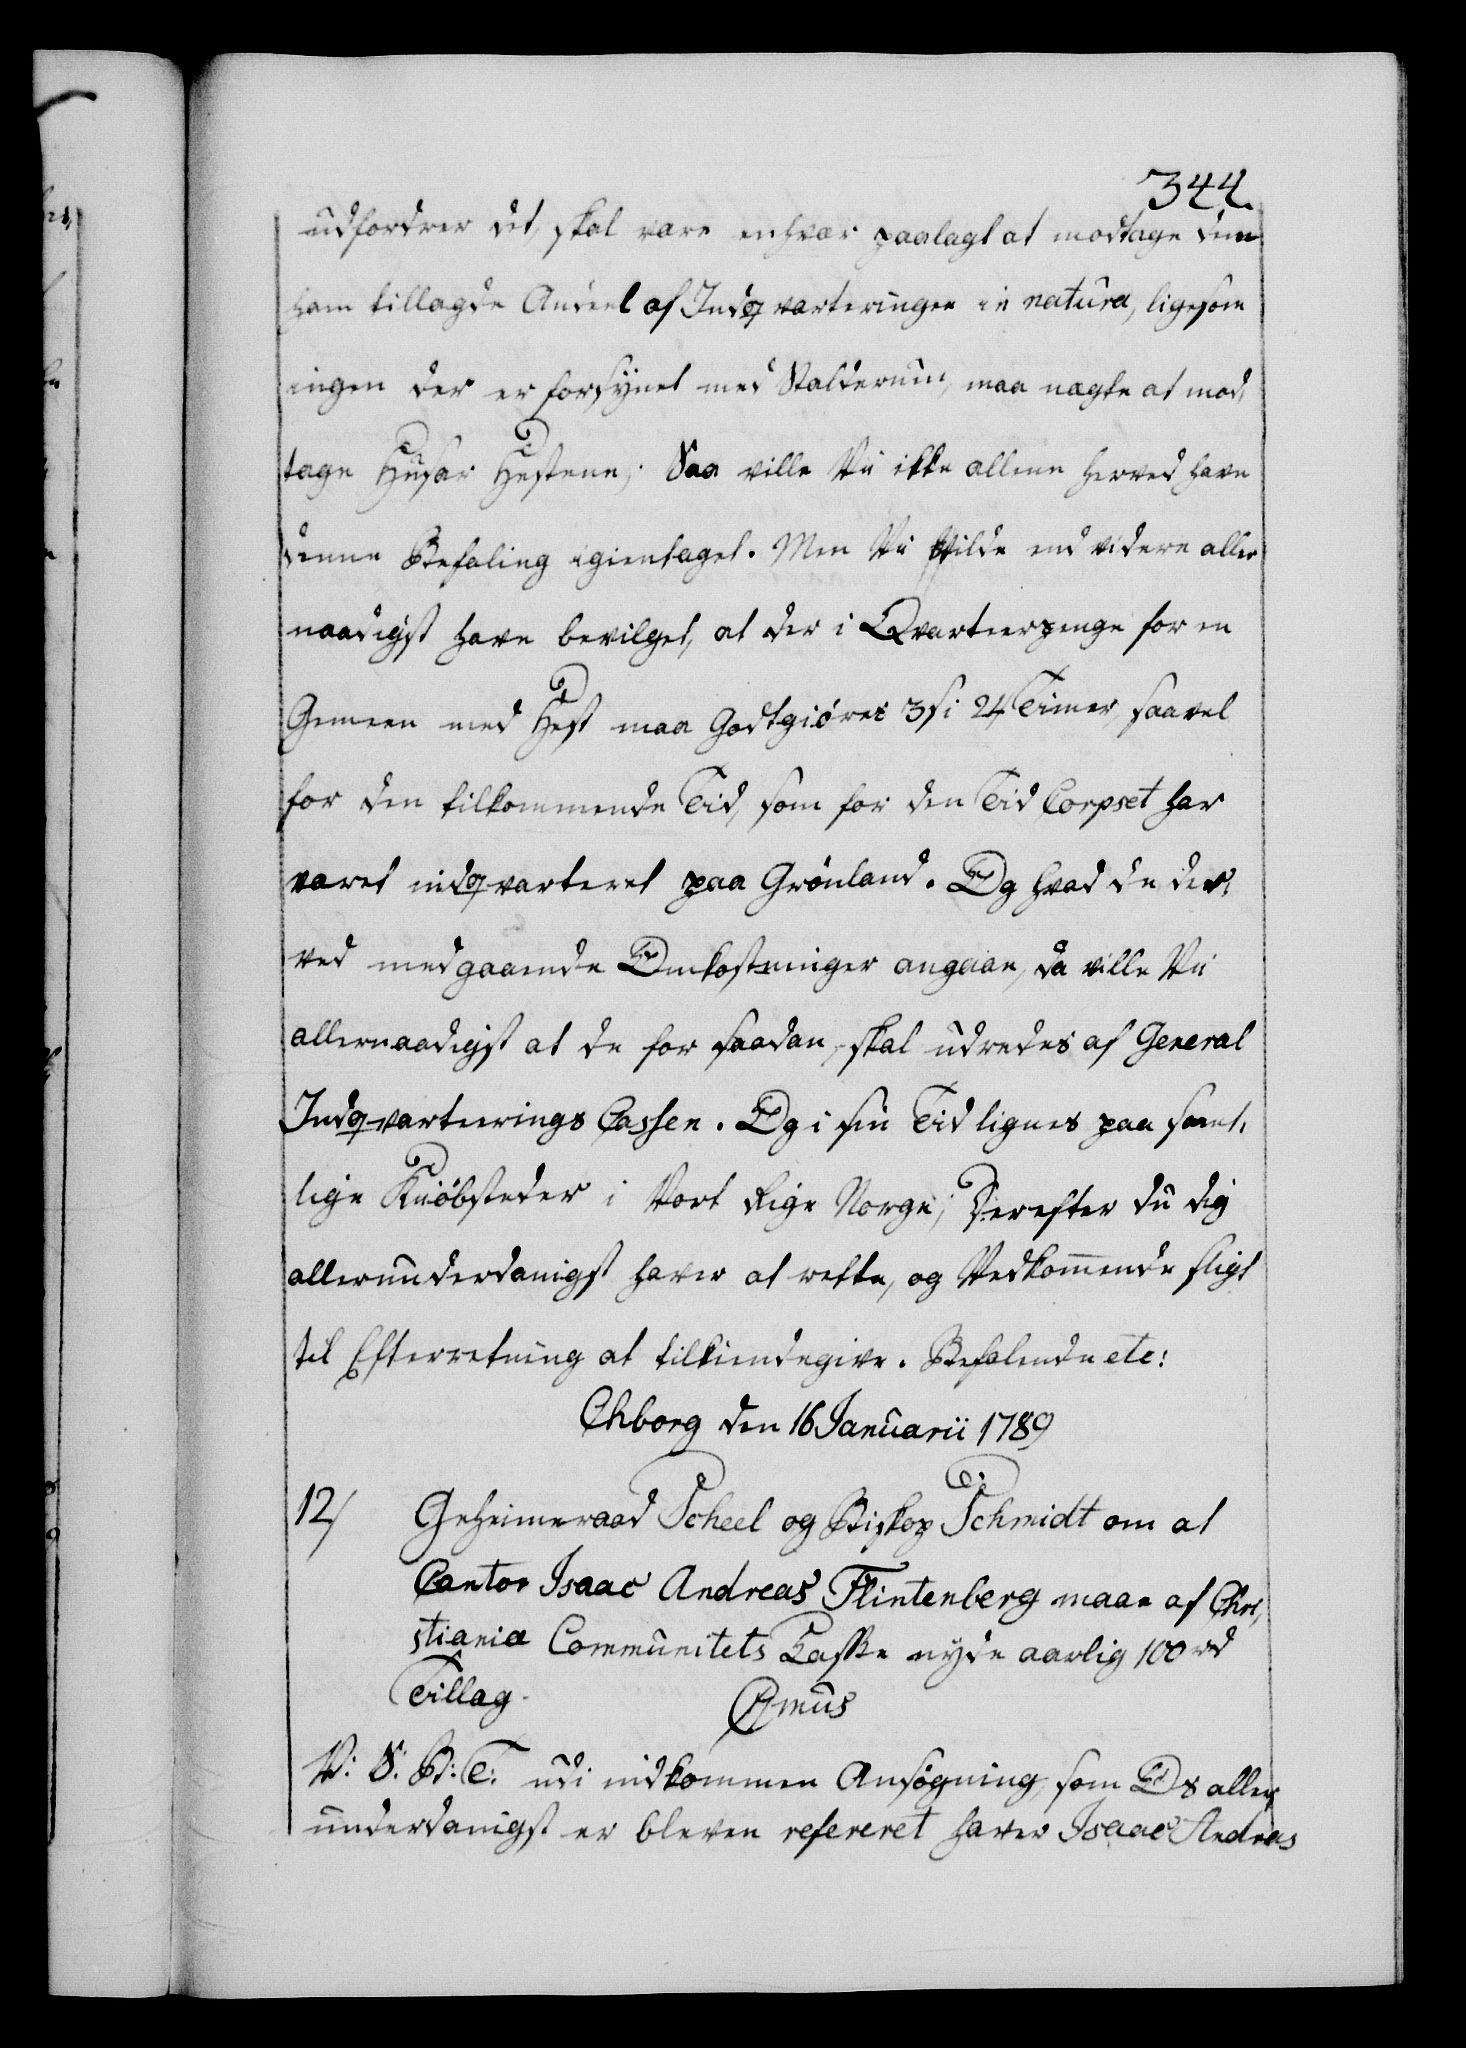 344.
udfordrer det, skal være enhver paalagt at modtage den
ham tillagde Andeel af Indqvarteringen in natura, ligesom
ingen der er forsÿnet med Stalderum, maa nægte at mod,
tage Husar Hestene; Saa ville Vii ikke allene herved have
denne Befaling igientaget. Men Vii vilde end videre aller
naadigst have bevilget, at der i Qvarteerpenge for en
Gemeen med Hest maa Godtgiöres 3 s i 24 Timer, saavel
for den tilkommende Tid, som for den Tid Corpset har
været indqvarteret paa Grönland. Og hvad de der,
ved medgaaende Omkostninger angaae, da ville Vii
allernaadigst at de for saadan, skal udredes af General
Indqvarteerings Cassen. Og i sin Tid lignes paa samt,
lige Kiöbstæder i Vort Rige Norge; Derefter du dig
allerunderdanigst haver at rette, og Vedkom̄ende sligt
til Efterretning at tilkiendegive. Befalende etc:
Chborg den 16 Januarii 1789
12/ Geheimeraad Scheel og Biskop Schmidt om at
Cantor Isaac Andreas Flintenberg maae af Chri,
stiania Communitets Casse nyde aarlig 100 rd
Tillæg. Cnus
V: S: B: T: udi indkommen Ansögning, som Os aller,
underdanigst er bleven refereret haver Isaac Andreas